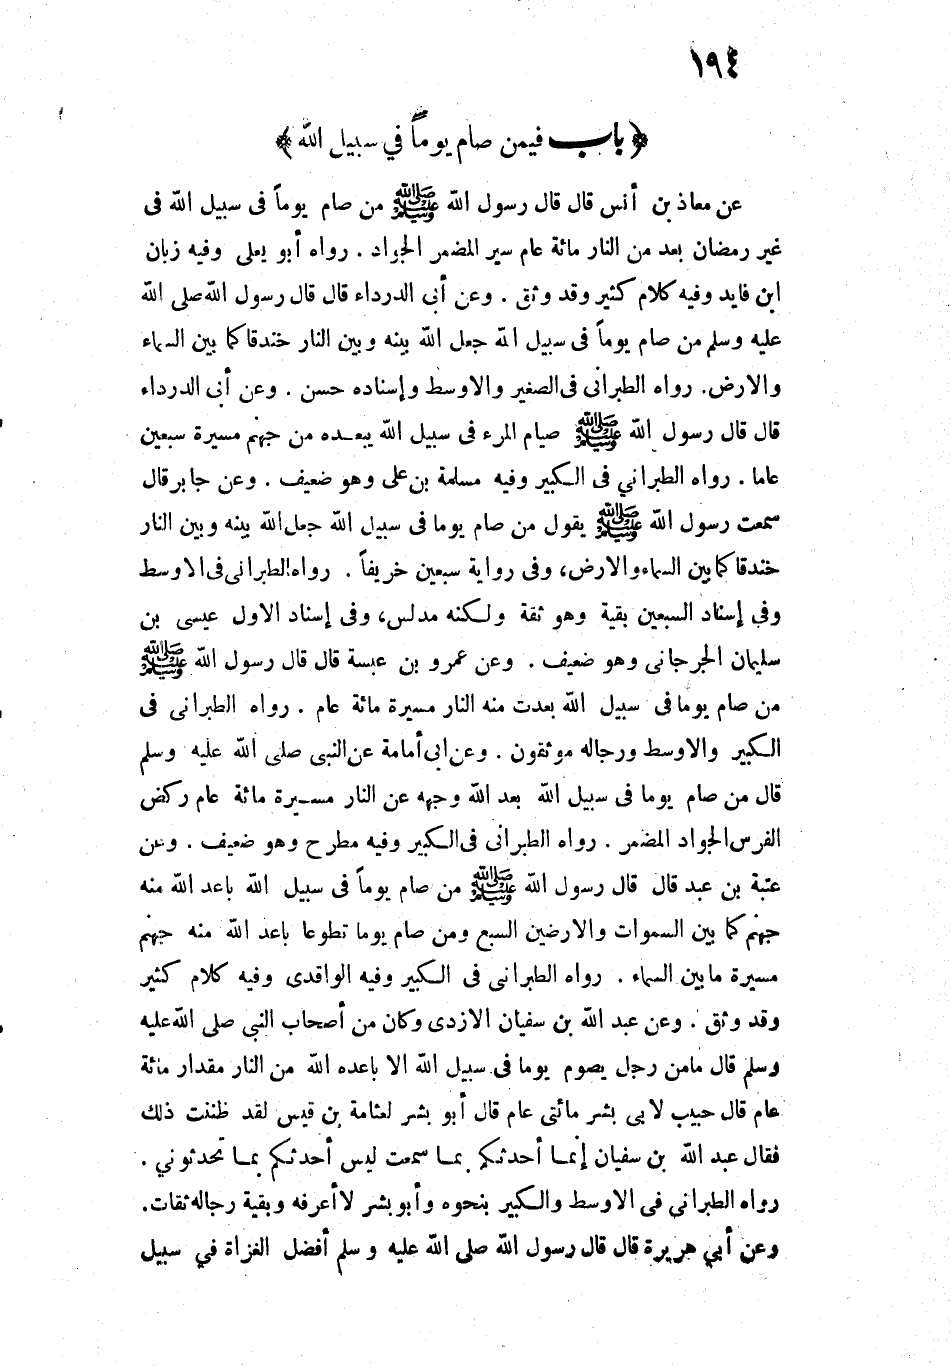 ١٩٤
﴿ باب فيمن صام يوماً في سبيل الله ﴾
عن معاذ بن أنس قال قال رسول الله ﷺ من صام يوماً فى سبيل الله فى
غير رمضان بعد من النار مائة عام سير المضمر الجواد . رواه أبو يعلى وفيه زبان
ابن فايد وفيه كلام كثير وقد وثق . وعن أبى الدرداء قال قال رسول الله صلى الله
عليه وسلم من صام يوماً فى سبيل الله جعل الله بينه وبين النار خندقا كما بين السماء
والارض. رواه الطبرانى فى الصغير والاوسط وإسناده حسن . وعن أبى الدرداء
قال قال رسول الله ﷺ صيام المرء فى سبيل الله يبعده من جهنم مسيرة سبعين
عاما . رواه الطبراني فى الكبير وفيه مسلمة بن على وهو ضعيف . وعن جابر قال
سمعت رسول الله ﷺ يقول من صام يوما فى سبيل الله جعل الله بينه وبين النار
خندقا كما بين السماء والارض، وفى رواية سبعين خريفاً . رواه الطبرانى فى الاوسط
وفي إسناد السبعين بقية وهو ثقة ولكنه مدلس، وفى إسناد الاول عيسى بن
سليمان الجرجانى وهو ضعيف . وعن عمرو بن عبسة قال قال رسول الله ﷺ
من صام يوما فى سبيل الله بعدت منه النار مسيرة مائة عام . رواه الطبرانى فى
الكبير والاوسط ورجاله موثقون . وعن ابى أمامة عن النبى صلى الله عليه وسلم
قال من صام يوما فى سبيل الله بعد الله وجهه عن النار مسيرة مائة عام ركض
الفرس الجواد المضمر . رواه الطبرانى فى الكبير وفيه مطرح وهو ضعيف . وعن
عتبة بن عبد قال قال رسول الله ﷺ من صام يوماً فى سبيل الله باعد الله منه
جهنم كما بين السموات والارضين السبع ومن صام يوما تطوعا باعد الله منه جهنم
مسيرة ما بين السماء . رواه الطبرانى فى الكبير وفيه الواقدى وفيه كلام كثير
وقد وثق . وعن عبد الله بن سفيان الازدى وكان من أصحاب النبي صلى الله عليه
وسلم قال مامن رجل يصوم يوما فى سبيل الله الا باعده الله من النار مقدار مائة
عام قال حبيب لابى بشر مائتى عام قال أبو بشر لعثامة بن قيس لقد ظننت ذلك
فقال عبد الله بن سفيان إنما أحدثكم بما سمعت ليس أحدثكم بما تحدثوني .
رواه الطبراني فى الاوسط والكبير بنحوه وأبو بشر لا أعرفه وبقية رجاله ثقات.
وعن أبي هريرة قال قال رسول الله صلى الله عليه وسلم أفضل الغزاة في سبيل